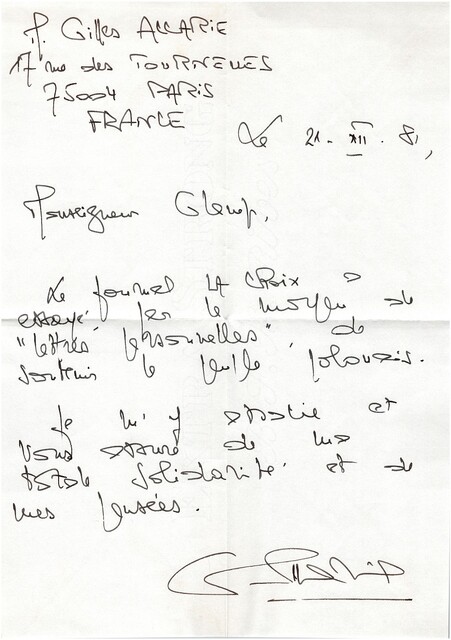 P. Gilles ALLARIE
17 rue des TOURNELLES
75004 PARIS
FRANCE
Le 21. XII. 81,
Monseigneur Glemp,
Le journal LA CROIX a
essayé par le moyen de
"lettres personnelles" de
soutenir le peuple polonais.
Je m'y associe et
vous assure de ma
totale solidarité et de
mes pensées.